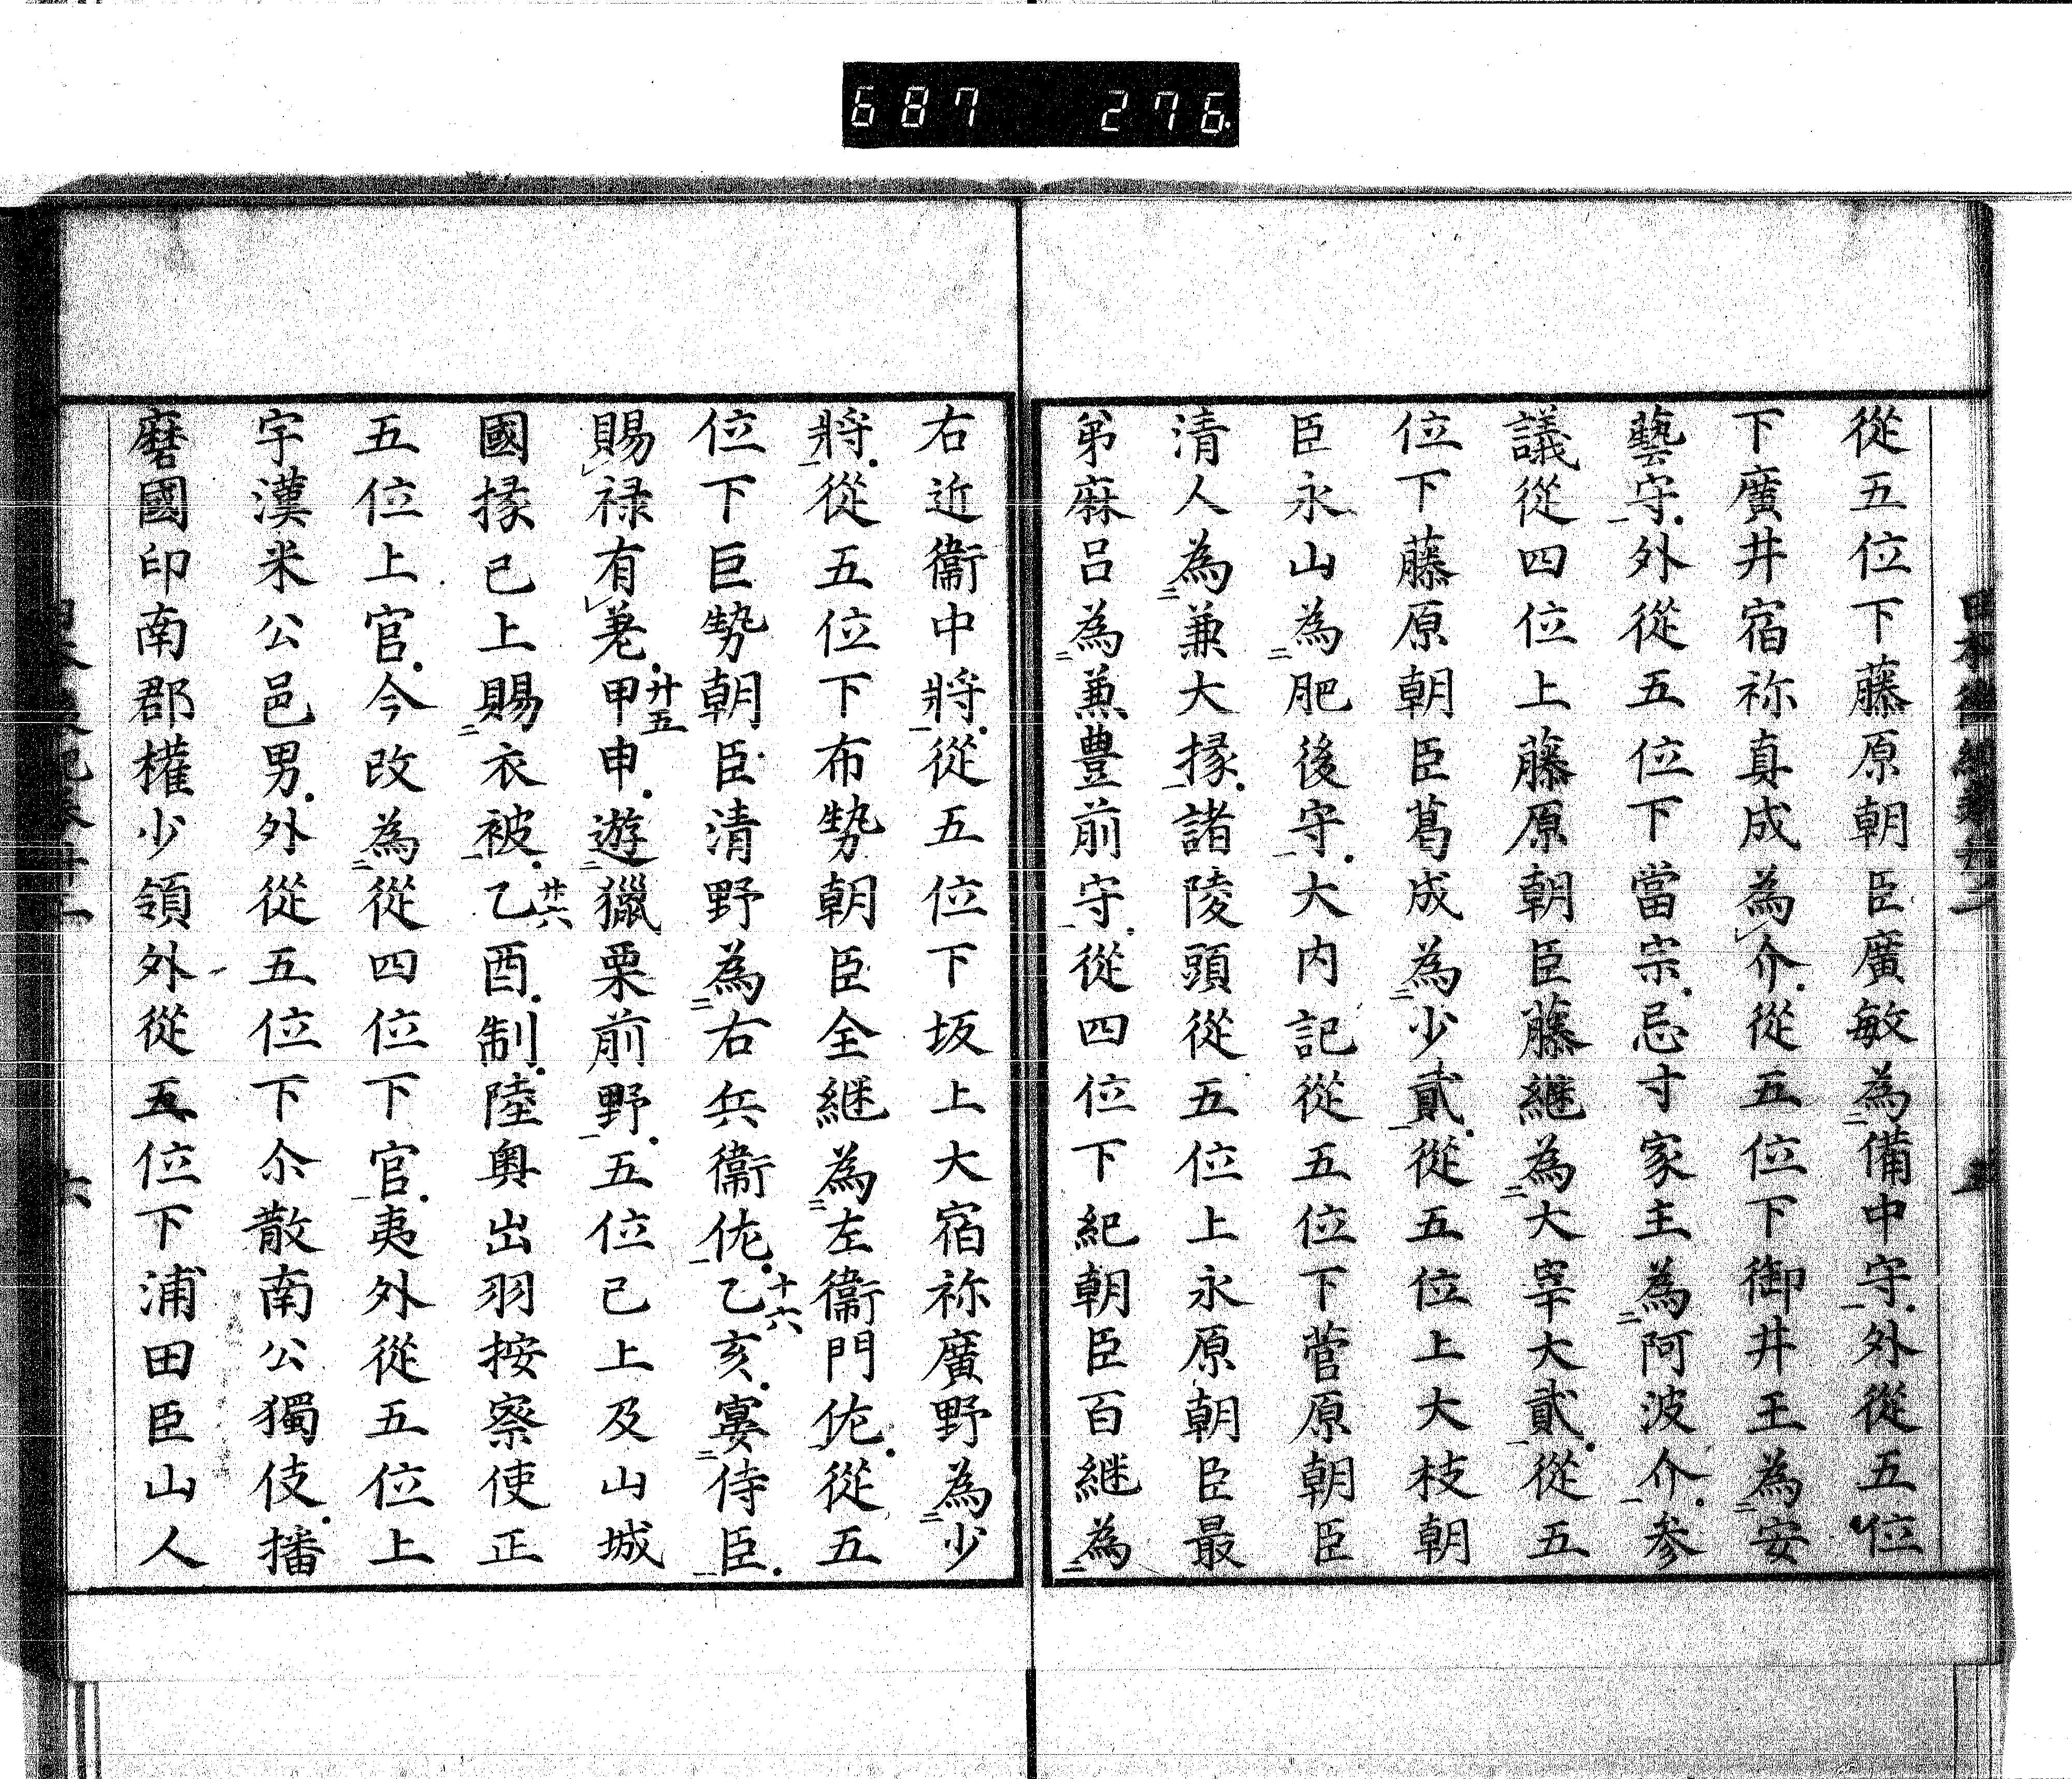 687 276
從五位下藤原朝臣廣敏為備中守外從五位
下廣井宿祢真成為介從五位下御井王為安
藝守外從五位下當宗忌寸家主為阿波介参
議從四位上藤原朝臣藤継為大宰大貳從五
位下藤原朝臣葛成為少貳從五位上大枝朝
臣永山為肥後守大内記從五位下菅原朝臣
清人為兼大掾諸陵頭從五位上永原朝臣最
弟麻呂為兼豊前守從四位下紀朝臣百継為
右近衞中將從五位下坂上大宿祢廣野為少
將從五位下布勢朝臣全継為左衞門佐從五
位下巨勢朝臣清野為右兵衞佐乙亥宴侍臣
十六
賜禄有差甲申遊獵栗前野五位已上及山城
廿五
國掾已上賜衣被乙酉制陸奥出羽按察使正
廿六
五位上官今改為從四位下官夷外從五位上
宇漢米公邑男外從五位下尒散南公獨伎播
磨國印南郡權少領外從五位下浦田臣山人
六